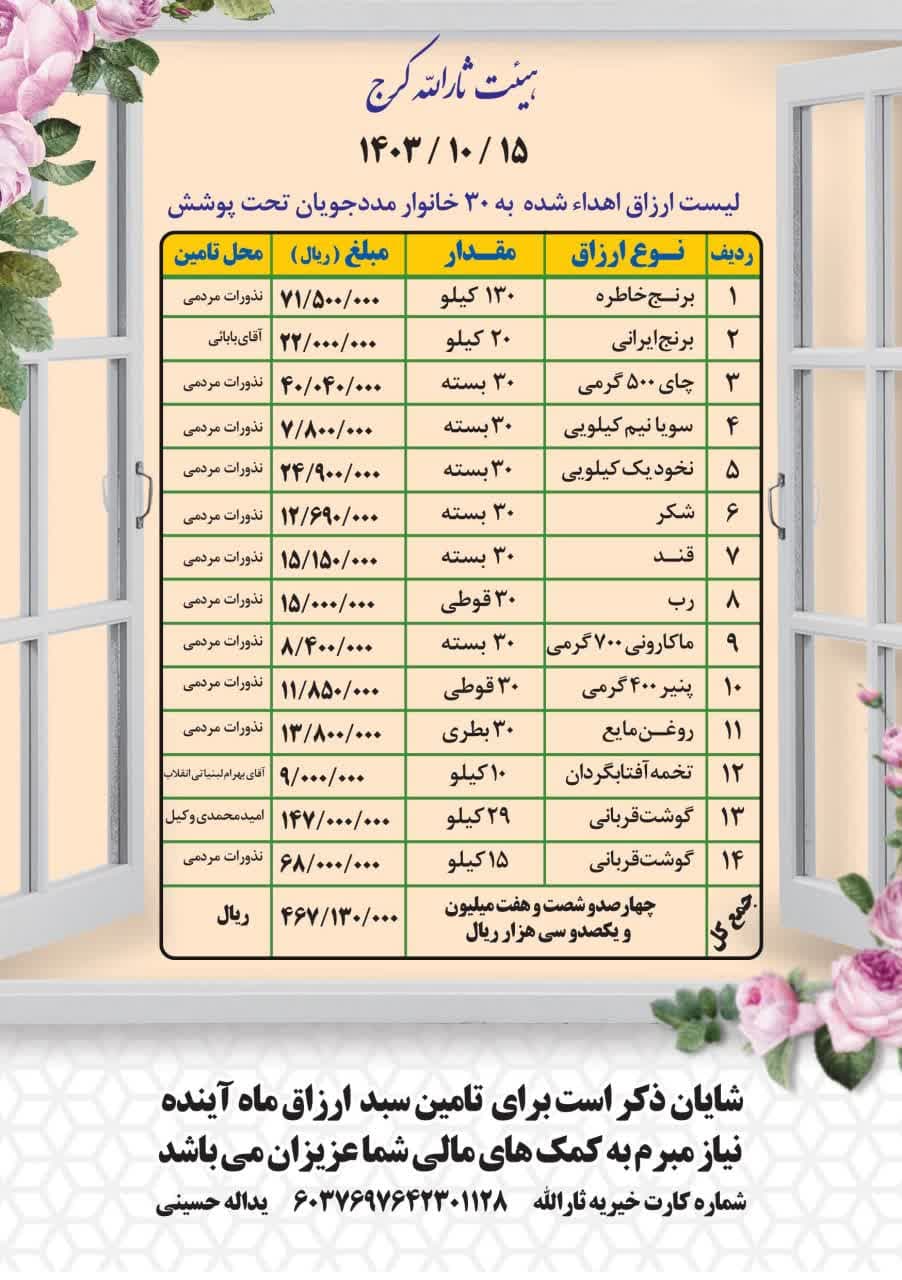 هیئت ثارالله کرج
۱۴۰۳ / ۱۰ / ۱۵
لیست ارزاق اهداء شده به ۳۰ خانوار مددجویان تحت پوشش
ردیف نوع ارزاق مقدار مبلغ (ریال) محل تامین
۱ برنج خاطره ۱۳۰ کیلو ۷۱/۵۰۰/۰۰۰ نذورات مردمی
۲ برنج ایرانی ۲۰ کیلو ۲۲/۰۰۰/۰۰۰ آقای بابائی
۳ چای ۵۰۰ گرمی ۳۰ بسته ۴۰/۰۴۰/۰۰۰ نذورات مردمی
۴ سویا نیم کیلویی ۳۰ بسته ۷/۸۰۰/۰۰۰ نذورات مردمی
۵ نخود یک کیلویی ۳۰ بسته ۲۴/۹۰۰/۰۰۰ نذورات مردمی
۶ شکر ۳۰ بسته ۱۲/۶۹۰/۰۰۰ نذورات مردمی
۷ قند ۳۰ بسته ۱۵/۱۵۰/۰۰۰ نذورات مردمی
۸ رب ۳۰ قوطی ۱۵/۰۰۰/۰۰۰ نذورات مردمی
۹ ماکارونی ۷۰۰ گرمی ۳۰ بسته ۸/۴۰۰/۰۰۰ نذورات مردمی
۱۰ پنیر ۴۰۰ گرمی ۳۰ قوطی ۱۱/۸۵۰/۰۰۰ نذورات مردمی
۱۱ روغن مایع ۳۰ بطری ۱۳/۸۰۰/۰۰۰ نذورات مردمی
۱۲ تخمه آفتابگردان ۱۰ کیلو ۹/۰۰۰/۰۰۰ آقای بهرام لبنیاتی انقلاب
۱۳ گوشت قربانی ۲۹ کیلو ۱۴۷/۰۰۰/۰۰۰ امید محمدی وکیل
۱۴ گوشت قربانی ۱۵ کیلو ۶۸/۰۰۰/۰۰۰ نذورات مردمی
جمع کل چهارصدو شصت و هفت میلیون ۴۶۷/۱۳۰/۰۰۰ ریال
و یکصدو سی هزار ریال
شایان ذکر است برای تامین سبد ارزاق ماه آینده
نیاز مبرم به کمک های مالی شما عزیزان می باشد
شماره کارت خیریه ثارالله ۶۰۳۷۶۹۷۶۴۲۳۰۱۱۲۸ یداله حسینی